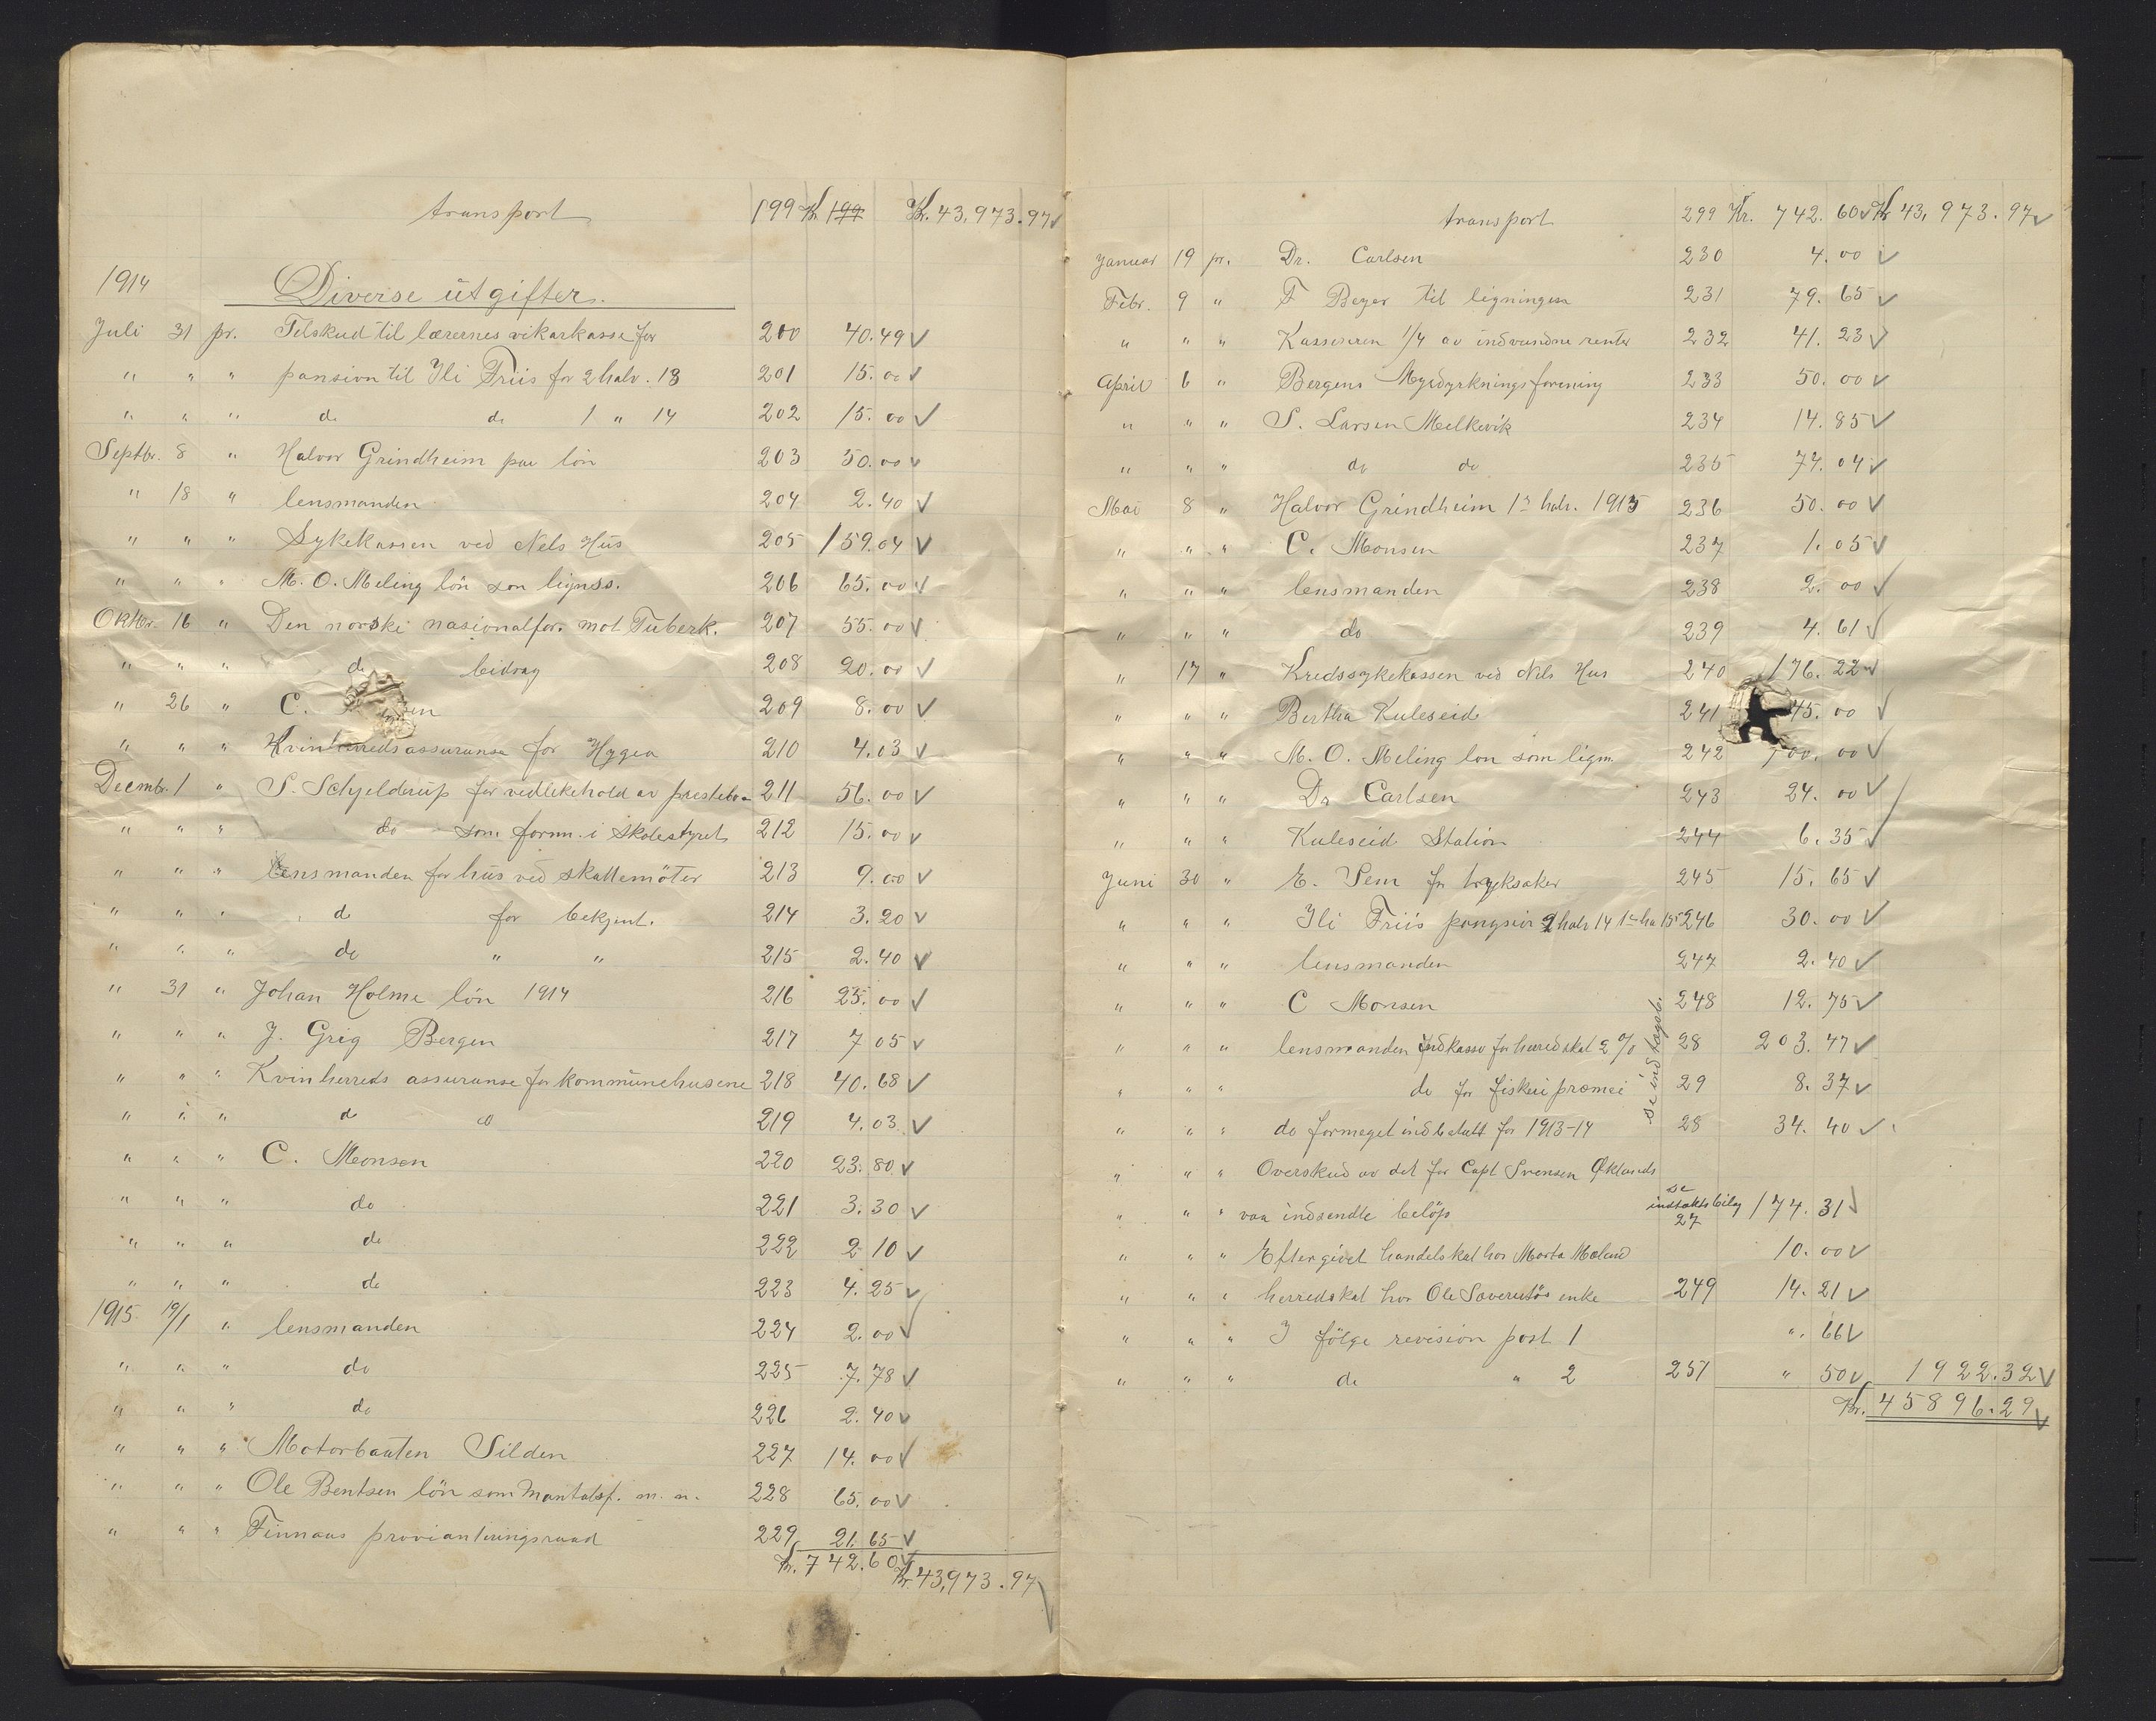 transport 199 Kr 199 Kr. 43,973.97 ✓
1914 Diverse utgifter.
Juli 31 pr. Tilskud til lærernes vikarkasse for 200 40.49 ✓
" " " pansion til Ili Friis for 2 halv. 13 201 15.00 ✓
" " " do do 1 " 14 202 15.00 ✓
Septbr. 8 " Halvor Grindheim paa lön 203 50.00 ✓
" 18 " lensmanden 204 2.40 ✓
" " " Sykekassen ved Nels Hus 205 159.04 ✓
" " " M. O. Meling lön som lignss. 206 65.00 ✓
Oktbr. 16 " Den norske nasionalfor. mot Tuberk. 207 55.00 ✓
" " " do bidrag 208 20.00 ✓
" 26 " C. 209 8.00 ✓
" " " Kvinherreds assuranse for Hygea 210 4.03 ✓
Decmbr. 1 " S. Schjelderup for vedlikehold av prestebo 211 56.00 ✓
" " " do som formn. i skolestyret 212 15.00 ✓
" " " lensmanden for hus ved skattemöter 213 9.00 ✓
" " " do for bekjent. 214 3.20 ✓
" " " do " " 215 2.40 ✓
" 31 " Johan Holme lön 1914 216 25.00 ✓
" " " J. Grig Bergen 217 7 05 ✓
" " " Kvinherreds assuranse for kommunehusene 218 40.68 ✓
" " " do do 219 4.03 ✓
" " " C. Monsen 220 23.80 ✓
" " " do 221 3.30 ✓
" " " do 222 2 10 ✓
" " " do 223 4.25 ✓
1915 19/1 " lensmanden 224 2.00 ✓
" " " do 225 7.78 ✓
" " " do 226 2.40 ✓
" " " Motorbaaten Silden 227 14.00 ✓
" " " Ole Bentsen lön som Mantalsf. m. m. 228 65.00 ✓
" " " Finnaas provianteringsraad 229 21.65 ✓
Kr. 742.60 ✓ Kr. 43,973.97 ✓
transport 299 Kr. 742.60 ✓ Kr 43,973.97 ✓
Januar 19 pr. Dr. Carlsen 230 4.00 ✓
Febr. 9 " F Beyer til ligningen 231 79.65 ✓
" " " Kasseren 1/4 av indvundne renter 232 41.23 ✓
April 6 " Bergens Myrdyrkningsforening 233 50.00 ✓
" " " S. Larsen Melkevik 234 14.85 ✓
" " " do do 235 74.04 ✓
Mai 8 " Halvor Grindheim 1ste halv. 1915 236 50.00 ✓
" " " C. Monsen 237 1.05 ✓
" " " lensmanden 238 2.00 ✓
" " " do 239 4.61 ✓
" 17 " Kredssykekassen ved Nels Hus 240 176.22 ✓
" " " Bertha Kuleseid 241 45.00 ✓
" " " M. O. Meling lon som ligm. 242 100.00 ✓
" " " Dr Carlsen 243 24.00 ✓
" " " Kuleseid Station 244 6.35 ✓
Juni 30 " E. Sem for tryksaker 245 15.65 ✓
" " " Ili Friis pangsion 2 halv 14 1ste ha 15 246 30.00 ✓
" " " lensmanden 247 2.40 ✓
" " " C Monsen 248 12.75 ✓
" " " lensmanden indkasso for herredskat 2 % 28 203.47 ✓
" " " do for fiskeri præmei 29 8.37 ✓
se indtægsb.
" " " do formeget indbetalt for 1913-14 28 34.40 ✓
" " " Overskud av det for Capt Svensen Øklands
" " " vaa indsendte belöp se indtaktsbilag 27 174.31 ✓
" " " Eftergivet handelskat hos Marta Mæland 10.00 ✓
" " " herredskat hos Ole Soverutös enke 249 14.21 ✓
" " " I fölge revision post 1 ". 66 ✓
" " " do " 2 251 " 50 ✓ 1922.32 ✓
Kr. 45896.29 ✓